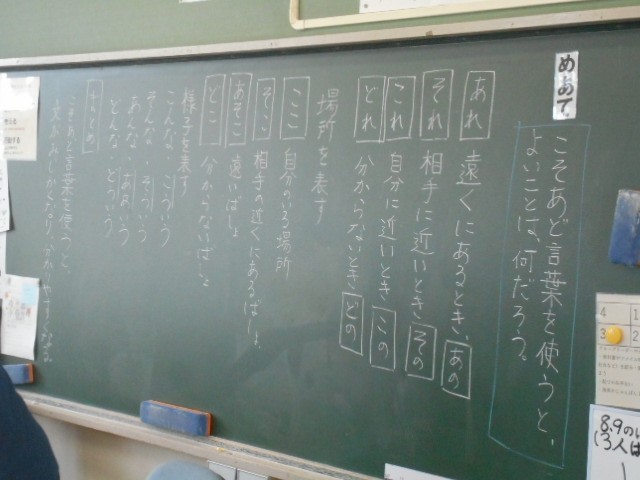 めあて
こそあど言葉を使うと、
よいことは、何だろう。
あれ 遠くにあるとき、あの
それ 相手に近いとき その
これ 自分に近いとき この
どれ 分からないとき どの
場所を表す
ここ 自分がいる場所
そこ 相手の近くにあるばしょ
あそこ 遠いばしょ
どこ 分からないばしょ
様子を表す
こんな・こういう
そんな・そういう
あんな・ああいう
どんな・どういう
まとめ
こそあど言葉を使うと、
文がみじかくなり、分かりやすくなる。
4 1
3 2
8.9の
(3人は